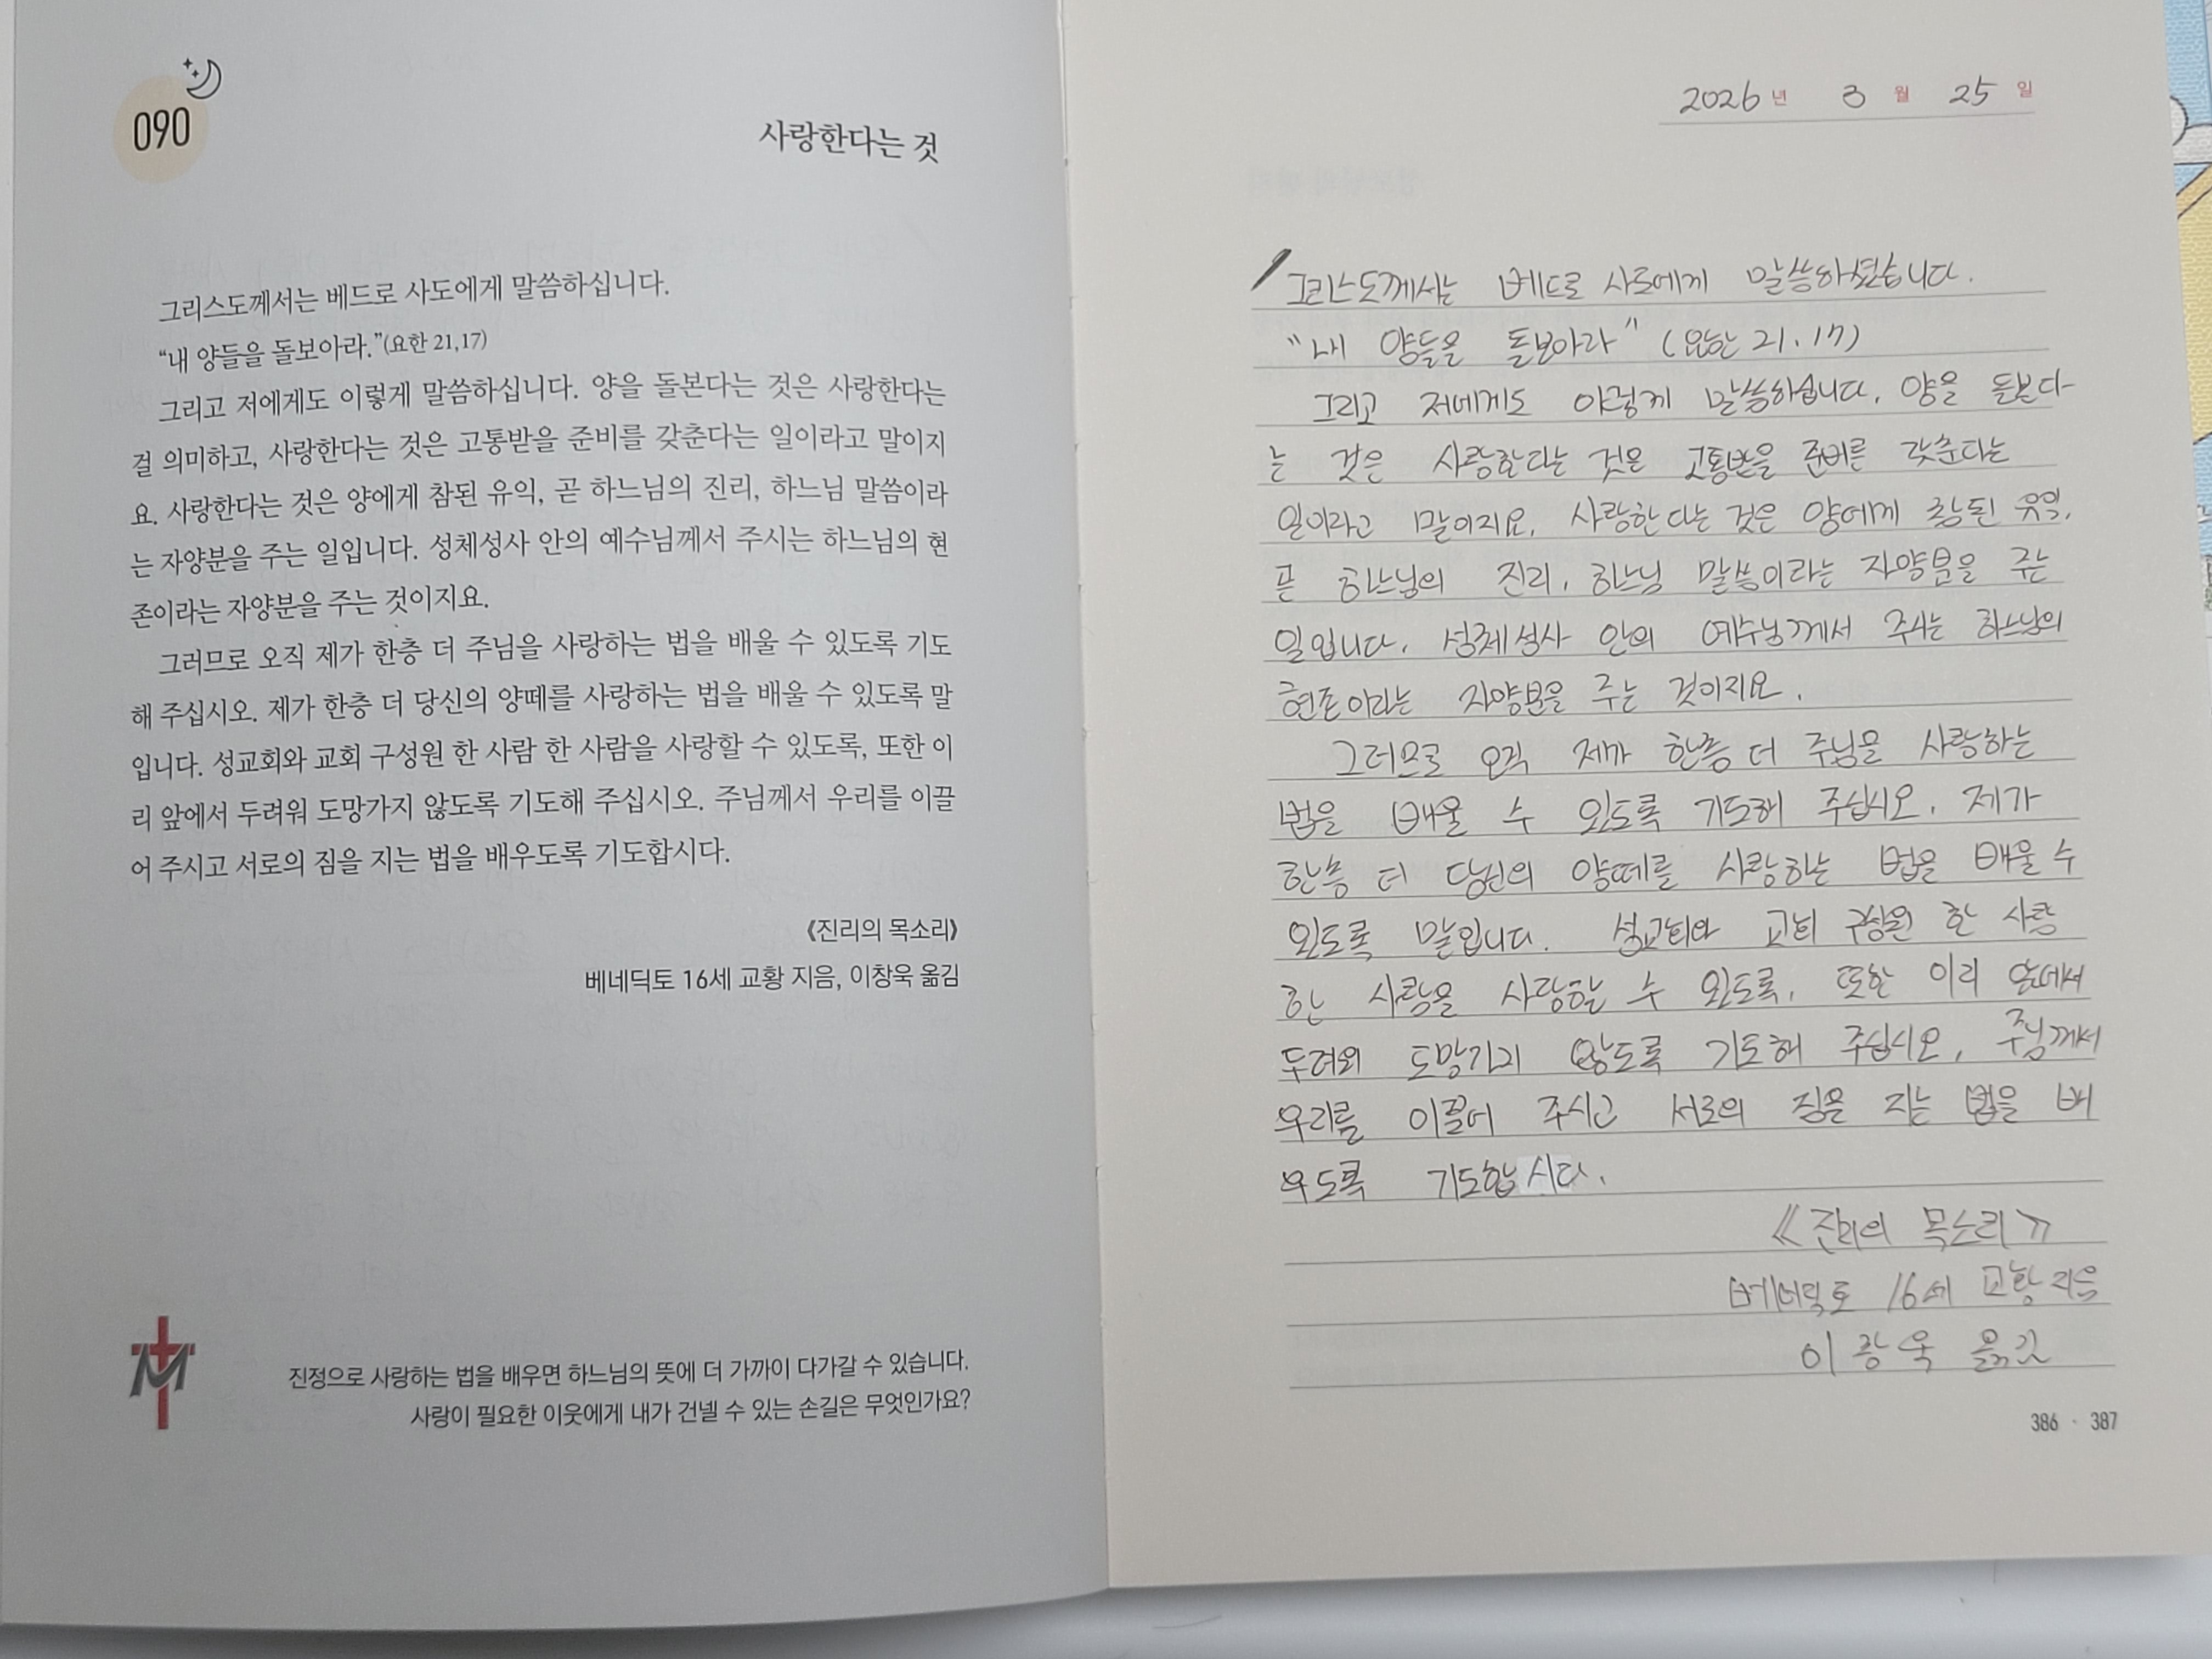 090
사랑한다는 것
그리스도께서는 베드로 사도에게 말씀하십니다.
“내 양들을 돌보아라.”(요한 21,17)
그리고 저에게도 이렇게 말씀하십니다. 양을 돌본다는 것은 사랑한다는
걸 의미하고, 사랑한다는 것은 고통받을 준비를 갖춘다는 일이라고 말이지
요. 사랑한다는 것은 양에게 참된 유익, 곧 하느님의 진리, 하느님 말씀이라
는 자양분을 주는 일입니다. 성체성사 안의 예수님께서 주시는 하느님의 현
존이라는 자양분을 주는 것이지요.
그러므로 오직 제가 한층 더 주님을 사랑하는 법을 배울 수 있도록 기도
해 주십시오. 제가 한층 더 당신의 양떼를 사랑하는 법을 배울 수 있도록 말
입니다. 성교회와 교회 구성원 한 사람 한 사람을 사랑할 수 있도록, 또한 이
리 앞에서 두려워 도망가지 않도록 기도해 주십시오. 주님께서 우리를 이끌
어 주시고 서로의 짐을 지는 법을 배우도록 기도합시다.
《진리의 목소리》
베네딕토 16세 교황 지음, 이창욱 옮김
진정으로 사랑하는 법을 배우면 하느님의 뜻에 더 가까이 다가갈 수 있습니다.
사랑이 필요한 이웃에게 내가 건넬 수 있는 손길은 무엇인가요?
2026년 3월 25일
그리스도께서는 베드로 사도에게 말씀하셨습니다.
“내 양들을 돌보아라” (요한 21.17)
그리고 저에게도 이렇게 말씀하십니다. 양을 돌본다
는 것은 사랑한다는 것은 고통받을 준비를 갖춘다는
일이라고 말이지요. 사랑한다는 것은 양에게 참된 유익,
곧 하느님의 진리, 하느님 말씀이라는 자양분을 주는
일입니다. 성체성사 안의 예수님께서 주시는 하느님의
현존이라는 자양분을 주는 것이지요.
그러므로 오직 제가 한층 더 주님을 사랑하는
법을 배울 수 있도록 기도해 주십시오. 제가
한층 더 당신의 양떼를 사랑하는 법을 배울 수
있도록 말입니다. 성교회와 교회 구성원 한 사람
한 사람을 사랑할 수 있도록, 또한 이리 앞에서
두려워 도망가지 않도록 기도해 주십시오, 주님께서
우리를 이끌어 주시고 서로의 짐을 지는 법을 배
우도록 기도합시다.
《진리의 목소리》
베네딕토 16세 교황 지음
이창욱 옮김
386 · 387